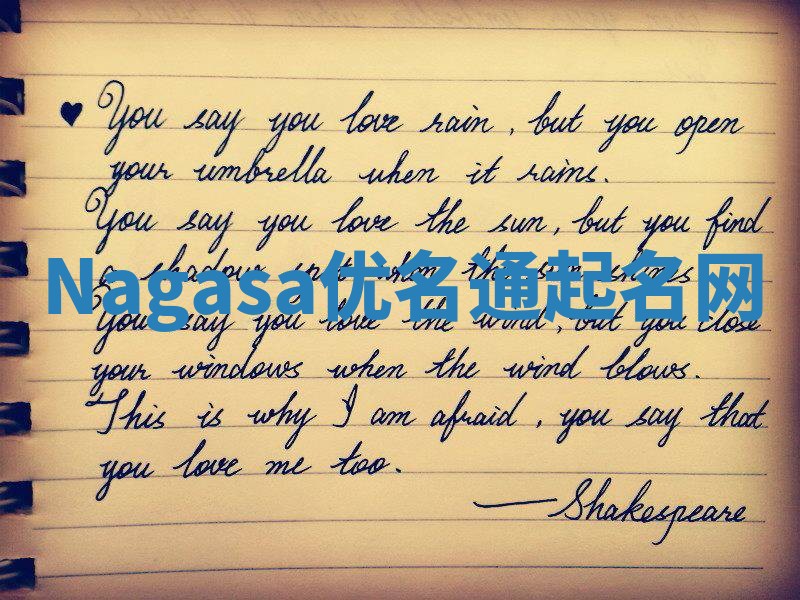 ♥ You say you love rain, but you open
your umbrella when it rains.
You say you love the sun, but you find
a shadow spot when the sun shines
Nagasa优名通起名网
You say you love the wind, but you close
your windows when the wind blows.
This is why I am afraid, you say that
you love me too.
—Shakespeare